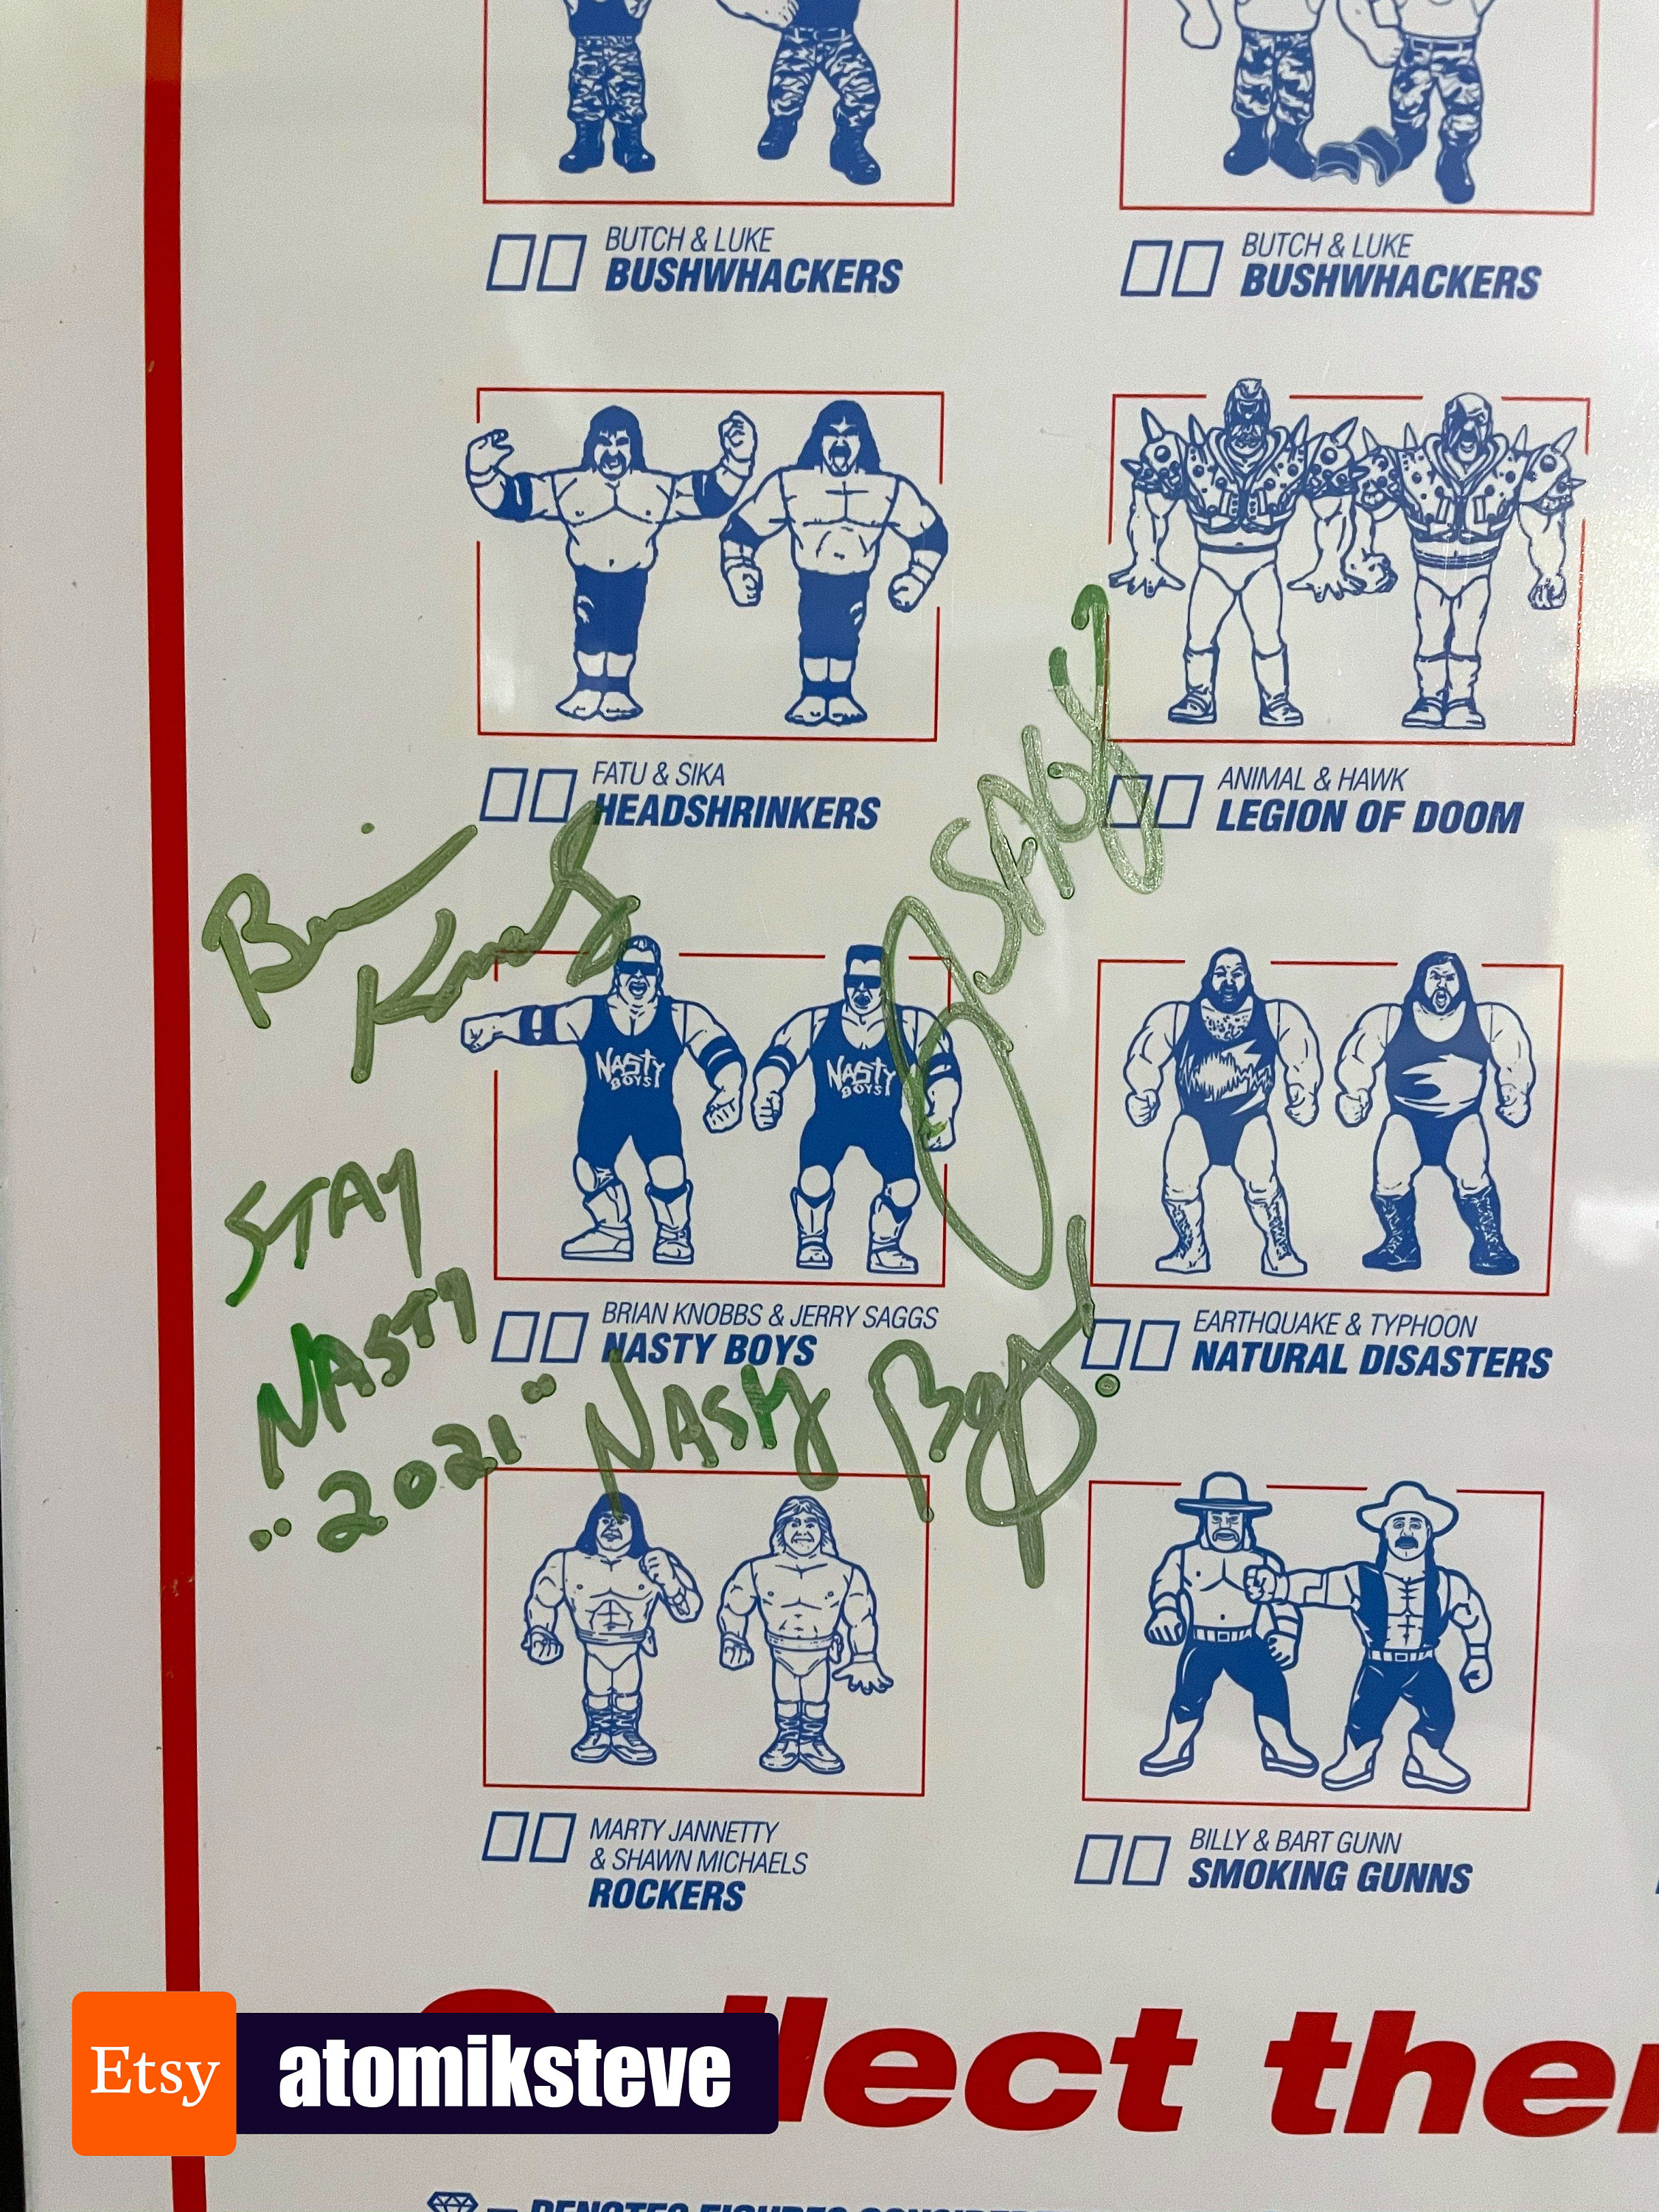 BUTCH & LUKE
BUSHWHACKERS
BUTCH & LUKE
BUSHWHACKERS
FATU & SIKA
HEADSHRINKERS
ANIMAL & HAWK
LEGION OF DOOM
Brian
Knobbs
J SAGS
NASTY
BOYS
NASTY
BOYS
STAY
NASTY
"2021"
BRIAN KNOBBS & JERRY SAGGS
NASTY BOYS
EARTHQUAKE & TYPHOON
NATURAL DISASTERS
NASTY BOYS!
MARTY JANNETTY
& SHAWN MICHAELS
ROCKERS
BILLY & BART GUNN
SMOKING GUNNS
Etsy
atomiksteve